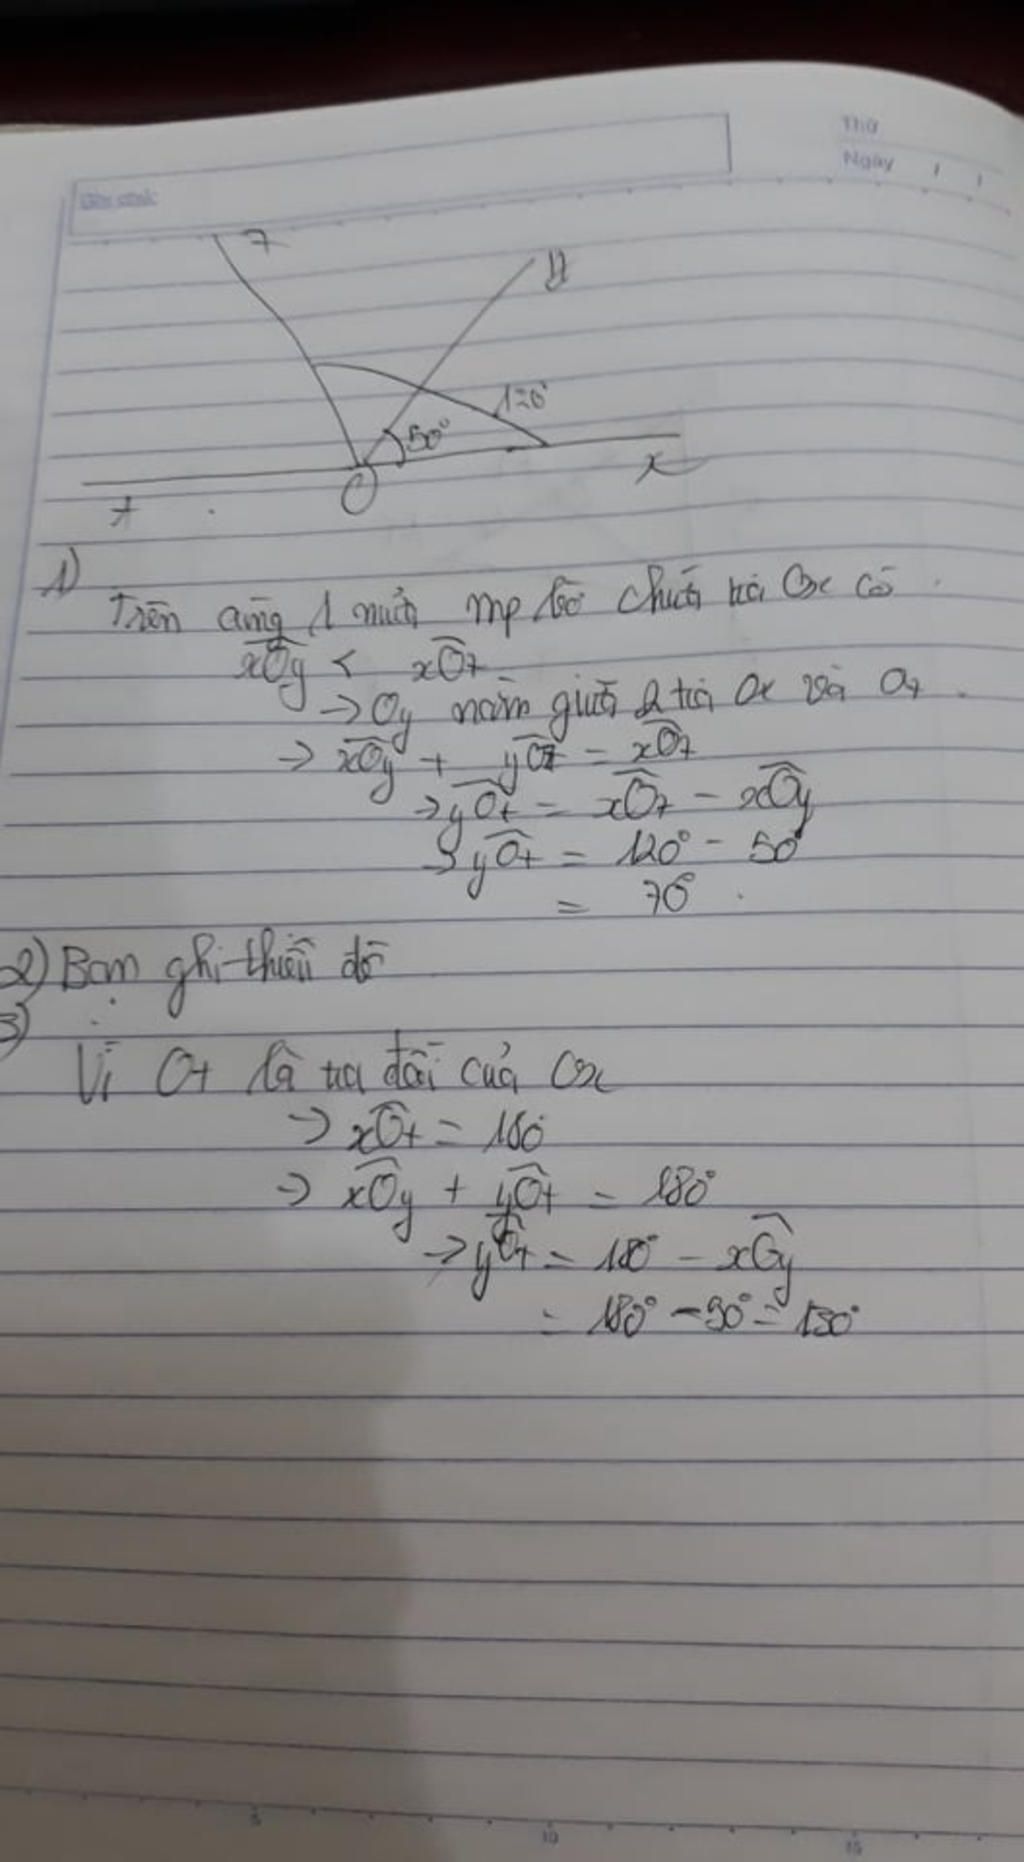 Thứ
Ngày
z
y
120°
50°
x
t
O
1)
Trên cùng 1 nửa mp bờ chứa tia Ox có
xÔy < xÔz
→ Oy nằm giữa 2 tia Ox và Oz
→ xÔy + yÔz = xÔz
→ yÔz = xÔz - xÔy
→ yÔz = 120° - 50°
= 70°
2) Bạn ghi thiếu đề
3)
Vì Ot là tia đối của Ox
→ xÔt = 180°
→ xÔy + yÔt = 180°
→ yÔt = 180° - xÔy
= 180° - 50° = 130°
5 10 15